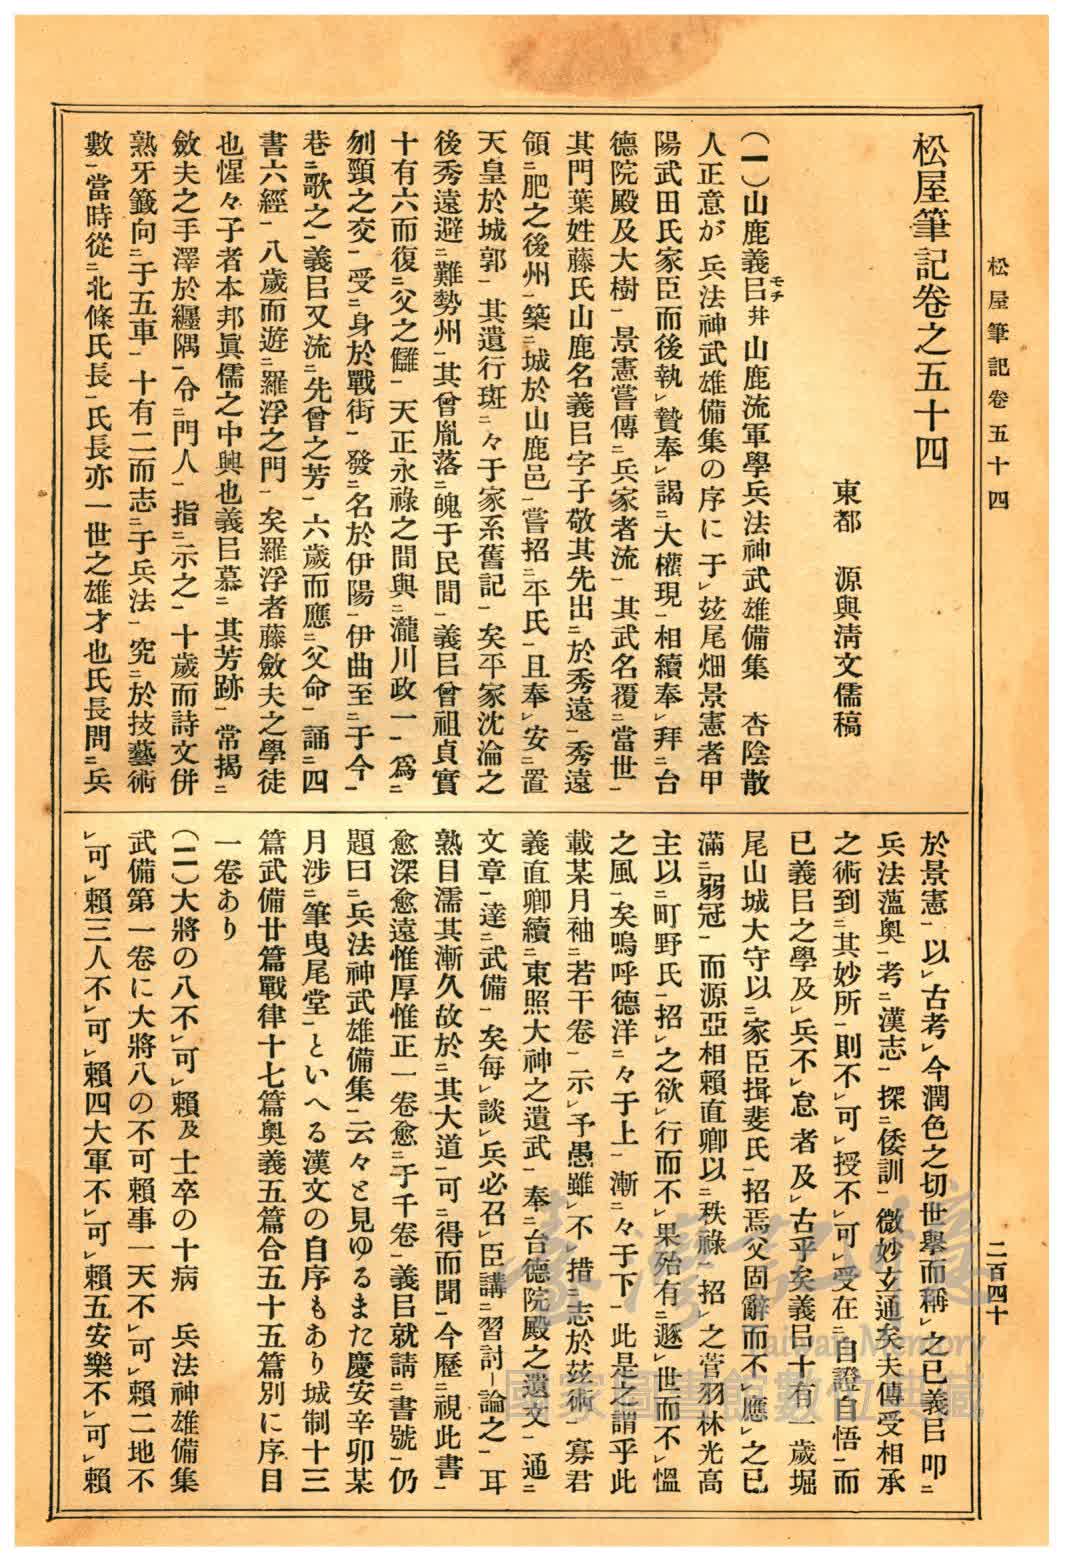 松屋筆記卷五十四
二百四十
松屋筆記卷之五十四
東都　源與淸文儒稿
(一)山鹿義㠯モチ幷山鹿流軍學兵法神武雄備集　杏陰散
人正意が兵法神武雄備集の序に于レ玆尾畑景憲者甲
陽武田氏家臣而後執レ贄奉レ謁ニ大權現一相續奉レ拜ニ台
德院殿及大樹一景憲嘗傳ニ兵家者流一其武名覆ニ當世一
其門葉姓藤氏山鹿名義㠯字子敬其先出ニ於秀遠一秀遠
領ニ肥之後州一築ニ城於山鹿邑一嘗招ニ平氏一且奉レ安ニ置
天皇於城郭一其遺行斑ニ々于家系舊記一矣平家沈淪之
後秀遠避ニ難勢州一其曾胤落ニ魄于民間一義㠯曾祖貞實
十有六而復ニ父之讎一天正永祿之間與ニ瀧川政一一爲ニ
刎頸之交一受ニ身於戰街一發ニ名於伊陽一伊曲至ニ于今一
巷ニ歌之一義㠯又流ニ先曾之芳一六歲而應ニ父命一誦ニ四
書六經一八歲而遊ニ羅浮之門一矣羅浮者藤斂夫之學徒
也惺々子者本邦眞儒之中興也義㠯慕ニ其芳跡一常揭ニ
斂夫之手澤於纒隅一令ニ門人一指ニ示之一十歲而詩文併
熟牙籤向ニ于五車一十有二而志ニ于兵法一究ニ於技藝術
數一當時從ニ北條氏長一氏長亦一世之雄才也氏長問ニ兵
於景憲一以レ古考レ今潤色之切世擧而稱レ之已義㠯叩ニ
兵法薀奧一考ニ漢志一探ニ倭訓一微妙玄通矣夫傳受相承
之術到ニ其妙所一則不レ可レ授不レ可レ受在ニ自證自悟一而
已義㠯之學及レ兵不レ怠者及レ古乎矣義㠯十有一歲堀
尾山城大守以ニ家臣揖斐氏一招焉父固辭而不レ應レ之已
滿ニ弱冠一而源亞相賴直卿以ニ秩祿一招レ之菅羽林光高
主以ニ町野氏一招レ之欲レ行而不レ果殆有ニ遯レ世而不レ慍
之風一矣嗚呼德洋ニ々于上一漸ニ々于下一此是之謂乎此
載某月袖ニ若干卷一示レ予愚雖レ不レ措ニ志於玆術一寡君
義直卿續ニ東照大神之遺武一奉ニ台德院殿之遺文一通ニ
文章一達ニ武備一矣每レ談レ兵必召レ臣講ニ習討-論之一耳
熟目濡其漸久故於ニ其大道一可ニ得而聞一今歷ニ視此書一
愈深愈遠惟厚惟正一卷愈ニ于千卷一義㠯就請ニ書號一仍
題曰ニ兵法神武雄備集一云々と見ゆるまた慶安辛卯某
月涉ニ筆曳尾堂一といへる漢文の自序もあり城制十三
篇武備廿篇戰律十七篇奧義五篇合五十五篇別に序目
一卷あり
(二)大將の八不レ可レ賴及士卒の十病　兵法神雄備集
武備第一卷に大將八の不可賴事一天不レ可レ賴二地不
レ可レ賴三人不レ可レ賴四大軍不レ可レ賴五安樂不レ可レ賴
臺灣記憶
Taiwan Memory
國家圖書館數位典藏